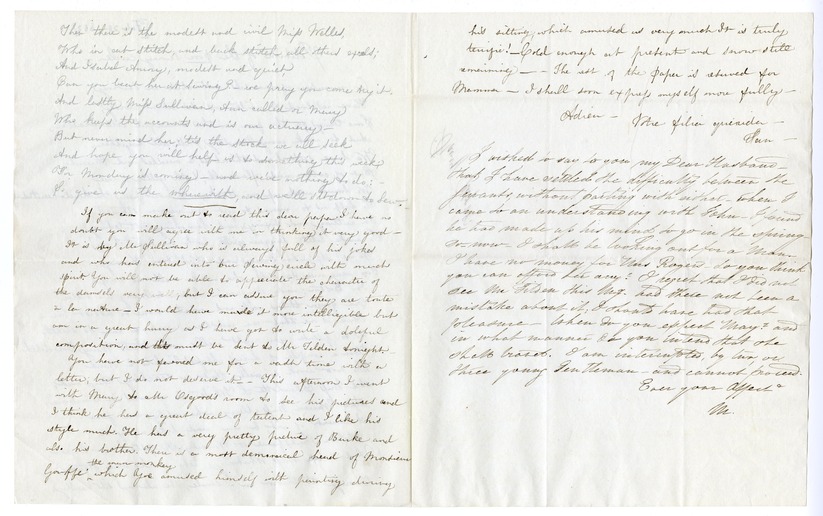 This there is the modest and civil Miss Welles,
Who in cut stitch, and back stitch all others excels;
And Isabel Avery, modest and quiet,
Can you beat her at sewing? I pray you come try it.
And lastly Miss Sullivan, Ann called or Mary
Who keeps the accounts and is our actuary—
But never mind her; tis the stock we all seek
And hope you will help us to do this week
For Monday is coming — and we've nothing to do; —
So give us the wherewith, and with to sew.
If you can make out to read this dear papa I have no
doubt you will agree with me in thinking it very good —
It is by Mr Sullivan who is always full of his jokes
and who has entered into our Sewing circle with much
spirit You will not be able to appreciate the character of
the damsels, but I can assure you they are toute
a la nature — I would have made it more intelligible but
am in a great hurry as I have got to write a doleful
composition, and this must be sent to Mr Tilden tonight
You have not favored me for a vast time with a
letter; but I do not deserve it — This afternoon I went
with Mary to Mr Osgood's room to see his pictures and
I think he has a great deal of talent and I like his
style much. He has a very pretty picture of Burke and
als. his brother. There is a most demoniacal head of Monsieur
Gouffe the man monkey which Joe amused himself with painting during
his sitting, which amused us very much It is truly
terrific! — Cold enough at present and snow still
remaining — — The rest of the paper is reserved for
Mamma — I shall soon express myself more fully —
Adieu — Votre
I wished to say to you my Dear Husband
that I have settled the difficulty between the
servants, without parting with either. When I
came to an understanding with John I found
he had made up his mind to go in the Spring
so now I shall be looking out for a Man
I have no money for Mrs Rogers do you think
you can afford her any? I regret that I did not
see Mr Tilden this had there not been a
mistake about it, I should have had that
pleasure — When do you expect Mary? and
in what manner do you intend that she
shall travel. I am interrupted, by two or
three young Gentlemen — and cannot proceed.
Ever your Affect
M.